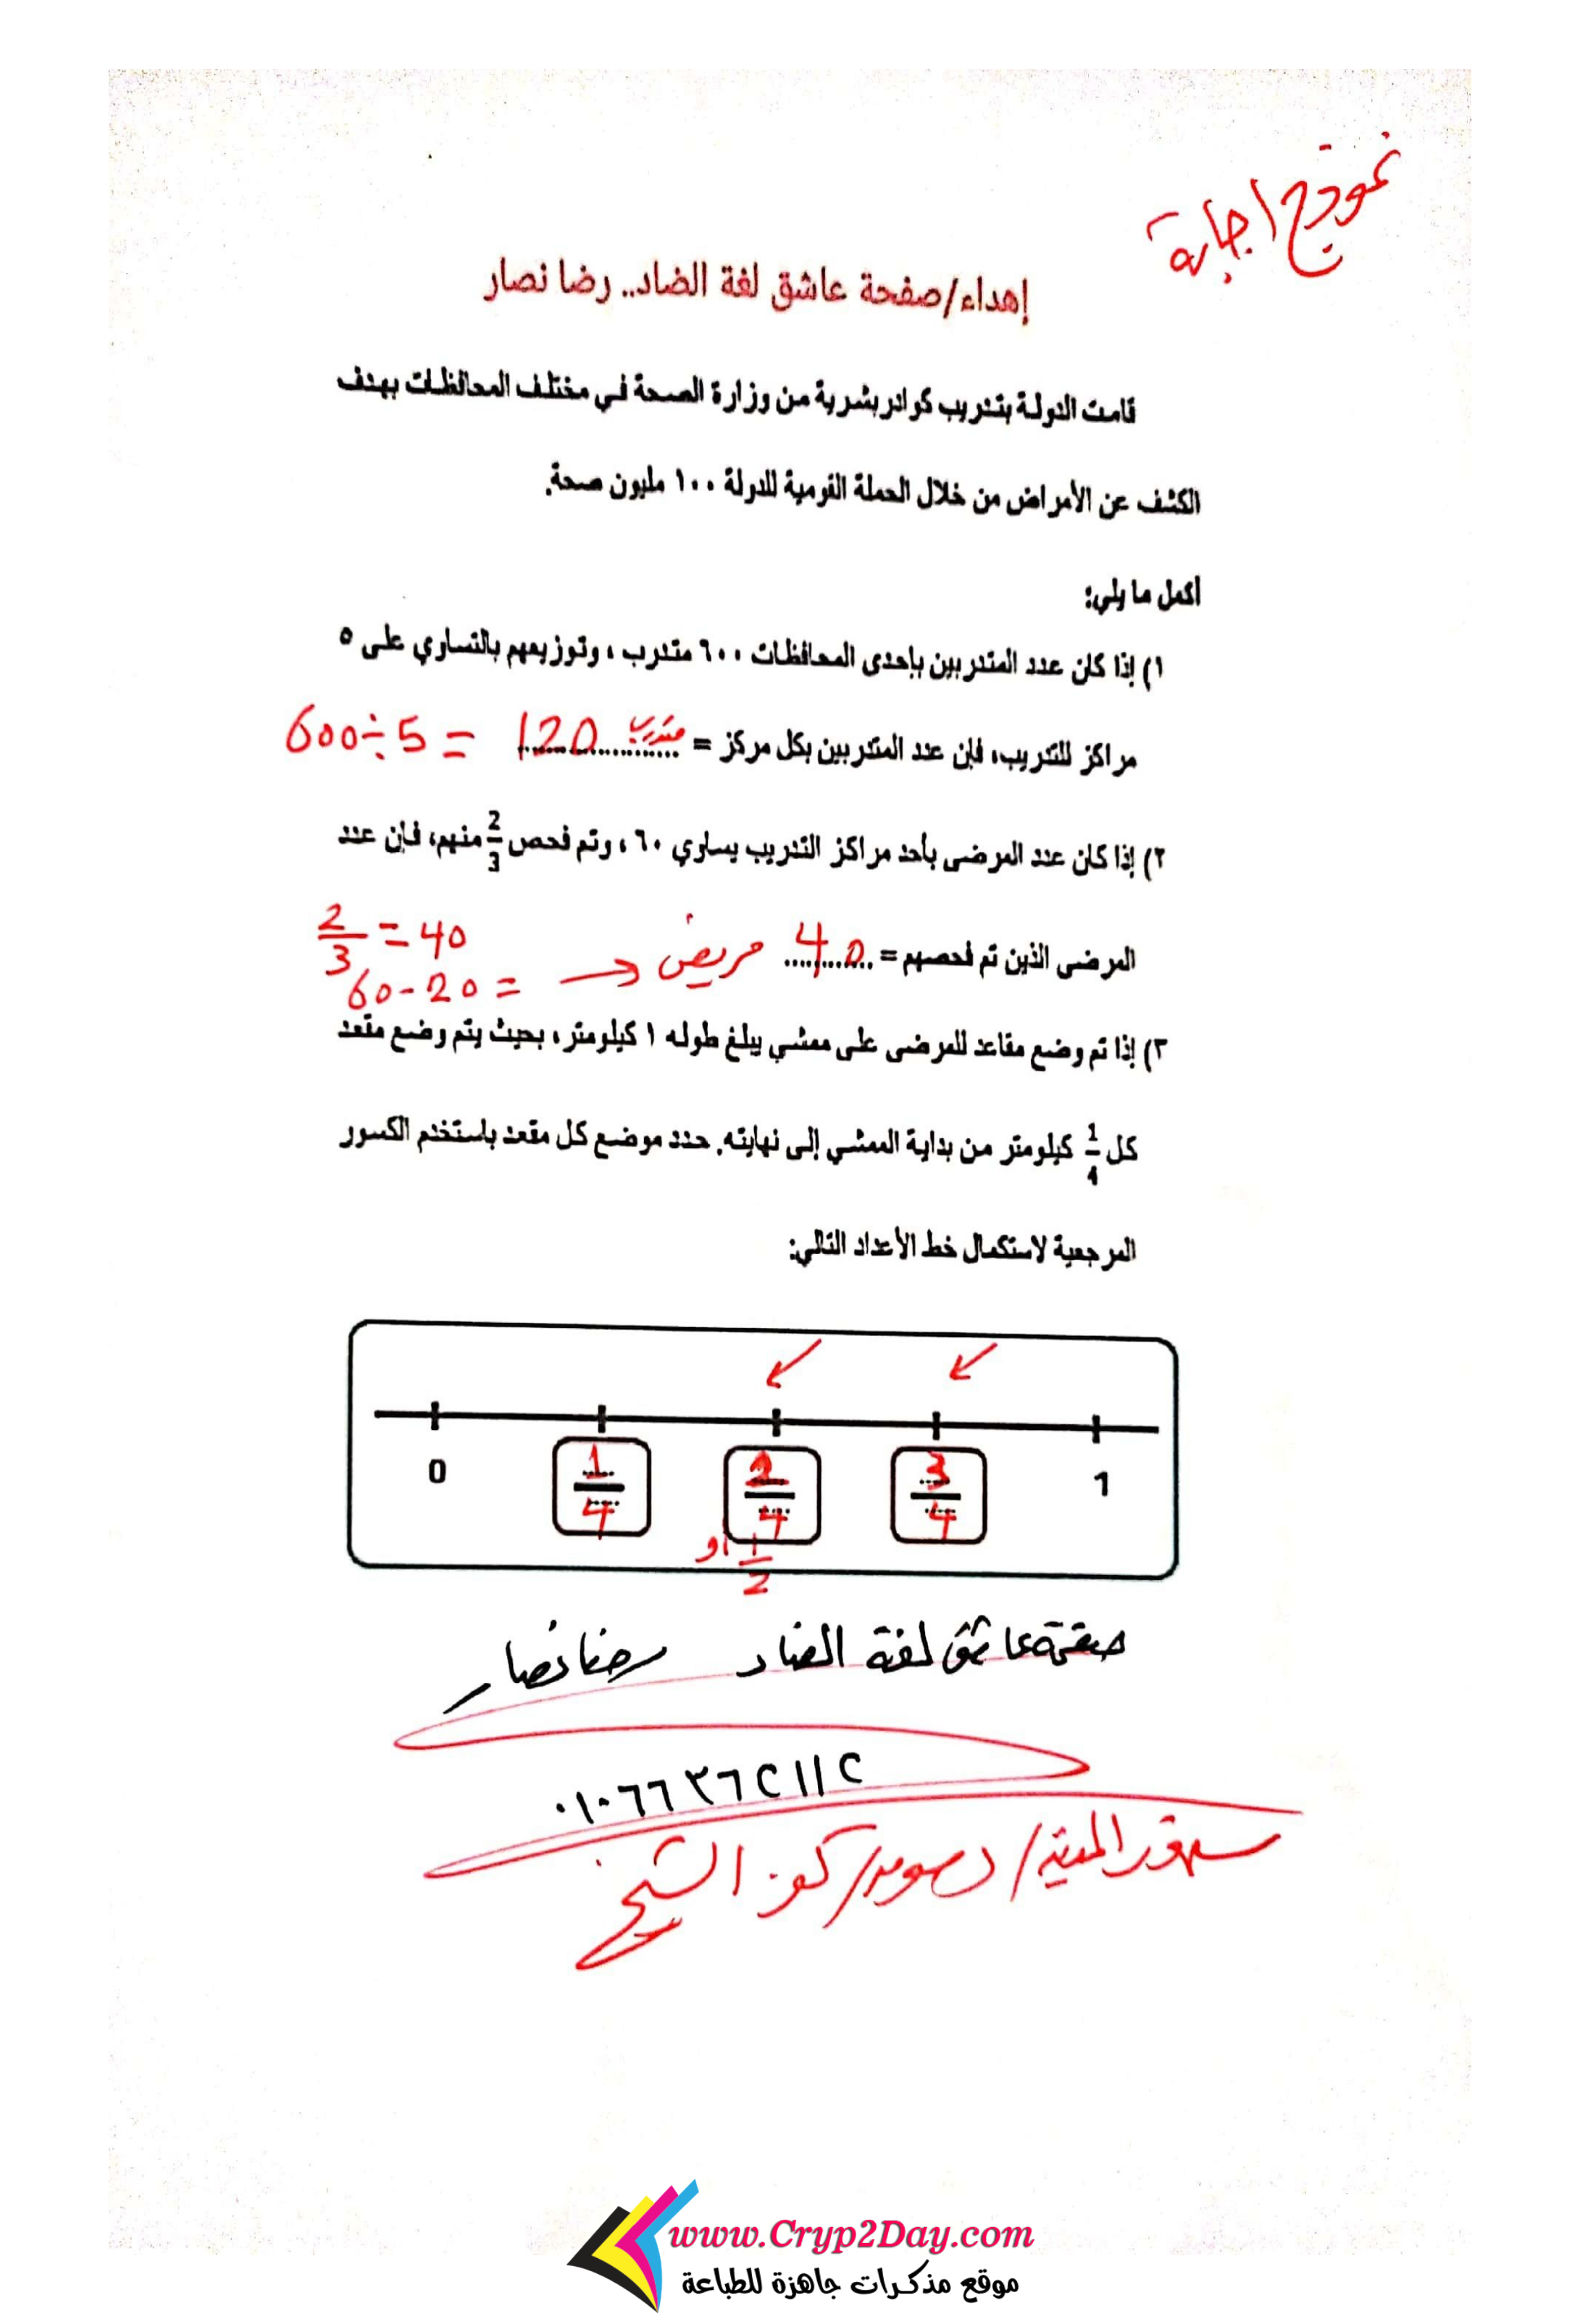 نموذج اجابة
إهداء/صفحة عاشق لغة الضاد.. رضا نصار
قامت الدولة بتدريب كوادر بشرية من وزارة الصحة في مختلف المحافظات بهدف
الكشف عن الأمراض من خلال الحملة القومية للدولة ١٠٠ مليون صحة.
أكمل ما يلي:
١) إذا كان عدد المتدربين بإحدى المحافظات ٦٠٠ متدرب ، وتوزيعهم بالتساوي على ٥
مراكز للتدريب، فإن عدد المتدربين بكل مركز = ........ 120 متدرب 600÷5 =
٢) إذا كان عدد المرضى بأحد مراكز التدريب يساوي ٦٠ ، وتم فحص 2/3 منهم، فإن عدد
المرضى الذين تم فحصهم = ........ 40 مريض 2/3 = 40
60-20 =
٣) إذا تم وضع مقاعد للمرضى على ممشي يبلغ طوله ١ كيلومتر ، بحيث يتم وضع مقعد
كل 1/4 كيلومتر من بداية الممشي إلى نهايته. حدد موضع كل مقعد باستخدم الكسور
المرجعية لاستكمال خط الأعداد التالي:
0 1/4 2/4 3/4 1
او 1/2
صفحة عاشق لغة الضاد رضا نصار
٠١٠٦٦٣٦٢١١٢
المدينة/ دسوق/ كفر الشيخ
www.Cryp2Day.com
موقع مذكرات جاهزة للطباعة